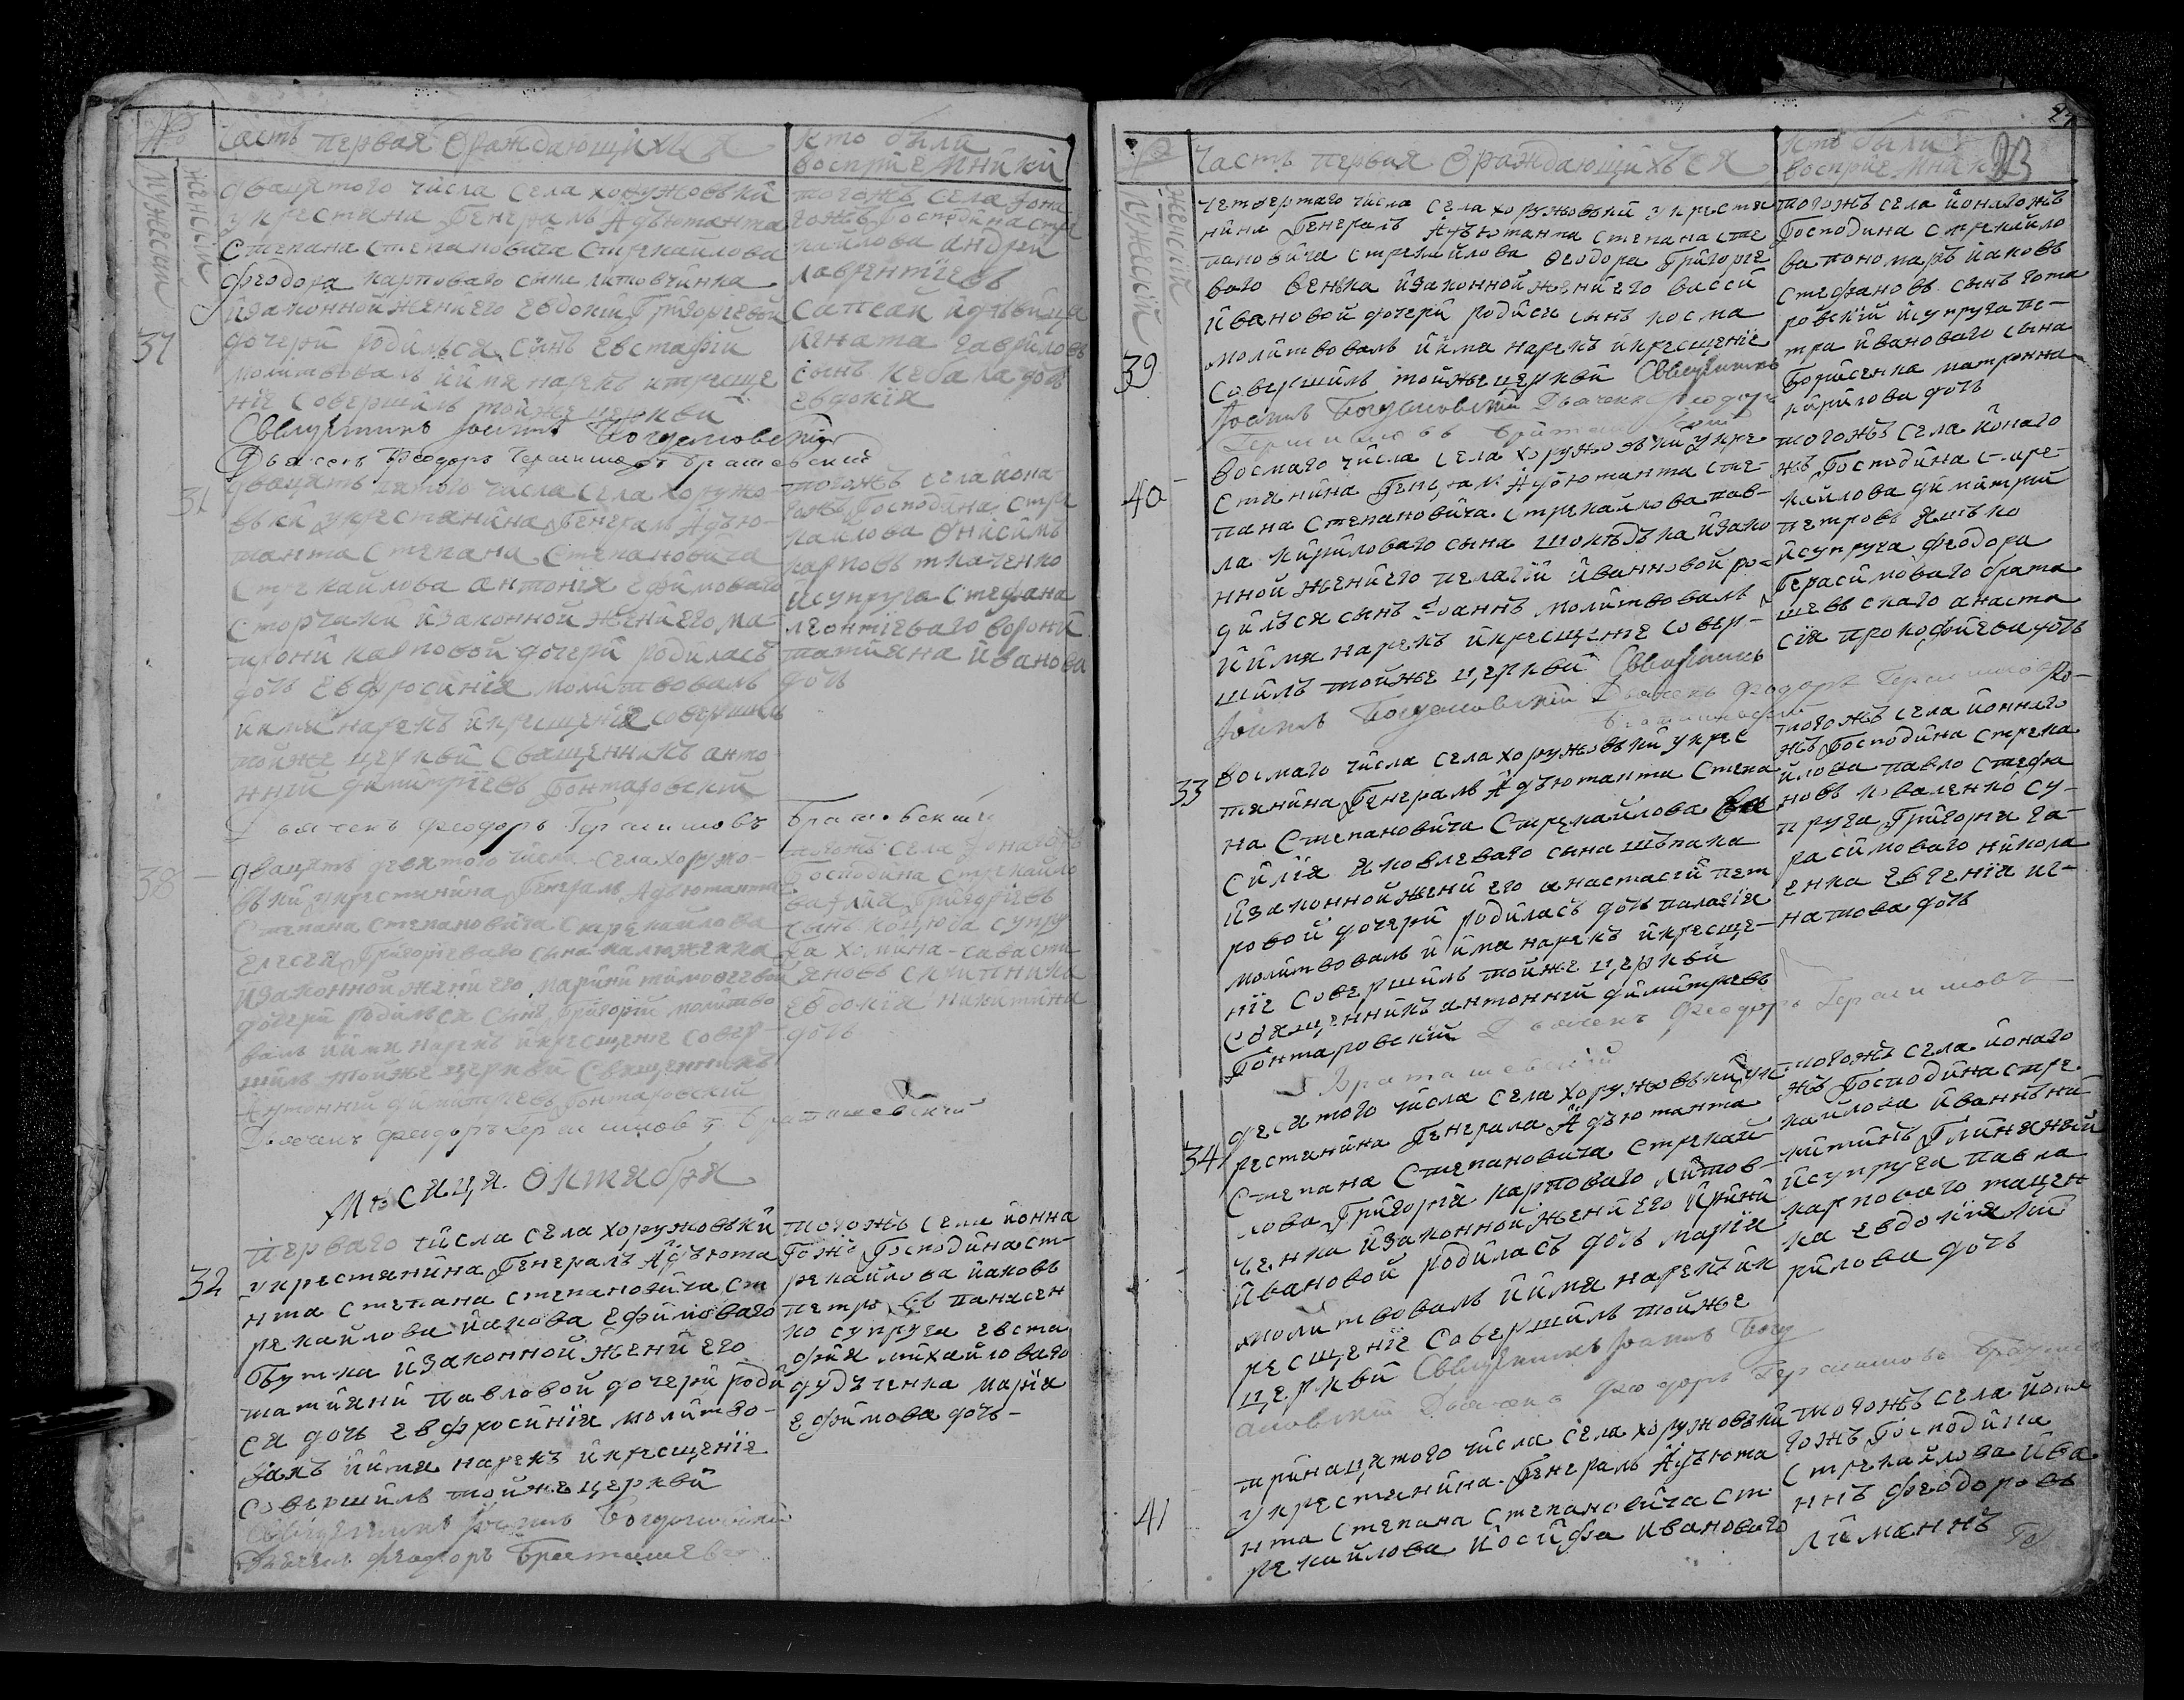 №
мужеский
женский
часть первая ораждающихся
кто были
восприемники
двацятого числа села хоружовъки
укрестяина Генераль Адъютанта
Степана степановича стрекайлова
феодора карповаго сына литовченка
изаконной жени его евдокіи Григоріевой
37
дочери родилься синъ евстафій
молитвовалъ иймя нарекъ икреще
ніе совершилъ тойже церкви
Священникъ Іоаннъ Богдановскій
Дьячекъ Феодоръ Герасимовъ Браташевский
тогожъ села йона
гожъ Господина стре
кайлова андрей
лаврентіевъ
Сапсай
гаврилова
сынъ
евдокія
31
двацять пятого числа села хоружо-
въки укрестянина Генераль Адъю-
танта Степана Степановича
Стрекайлова антонія ефимоваго
Сторчака изаконной жени его ма
трони карповой дочери родилась
дочь евфросинія молитвовалъ
иимя нарекъ икрещеніе совершилъ
тойже церкви Священникъ анто
нній димитріевъ Гонтаровский
Дьячекъ Феодоръ Герасимовъ Браташевский
тогожъ села йона
гожъ Господина стре
кайлова Онисимъ
карповъ ткаченко
исупруга Стефана
леонтіеваго ворони
татияна иванова
дочь
38
двацять девятого числа села хоружо-
въки укрестянина Генераль Адъютанта
Степана степановича Стрекайлова
елесея Григоріеваго сына калюженка
изаконной жени его марини тимофеевой
дочери родилься синъ Григорій молитво
валъ иимя нарекъ икрещеніе совер-
шилъ тойже церкви Священникъ
Антонній димитріевъ Гонтаровский
Дьячекъ Феодоръ Герасимовъ Браташевский
тогожъ села йонагожъ
Господина Стрекайло
ва илия Григоріевъ
сынъ коцюба супру
га хомина савасти
яновъ скрипника
Евдокія никитина
дочь
Мѣсяця Октября
32
перваго числа села хоружовъки
укрестянина Генераль Адъюта
нта степана степановича ст
рекайлова иакова ефимоваго
бутка изаконной жени его
татияни павловой дочери роди
ся дочь евфросинія молитво-
валъ иимя нарекъ икрещеніе
совершилъ тойже церкви
Священникъ Іоаннъ Богдановский
Дьячекъ Феодоръ Браташевс
тогожъ села йонна
гожъ Господина ст-
рекайлова иаковъ
петровъ панасен
ко супруга евста
фія михайловаго
дудченка марія
ефимова дочь-
27
23
№
мужеский
женский
часть первая ораждающихъся
кто были
восприемники
39
четвертаго числа села хоружовъки укрестя
нина Генераль Адъютанта степана сте
пановича стрекайлова Феодора Григорие
ваго Сенька изаконной жени его васси
ивановой дочери родися сынъ косма
молитвовалъ иимя нарекъ икрещеніе
совершилъ тойже церкви Священникъ
Іоаннъ Богдановский Дьячекъ Феодоръ
Герасимовъ Браташевский
тогожъ села йонагожъ
Господина стрекайло
ва пономарь иаковъ
Стефановъ сынъ гонта
ровский исупруга пе-
тра ивановаго сына
Борисенка матронна
кирилова дочь
40
Восмаго числа села хоружовъки укре
стянина Генераль Адъютанта сте-
пана Степановича стрекайлова пав-
ла кириловаго сына шокъдъка изако
нной жени его пелагии иванновой ро-
дилься сынъ Іоаннъ молитвовалъ
иимя нарекъ икрещеніе совер-
шилъ тойже церкви Священникъ
Іоаннъ Богдановский Дьячекъ Феодоръ Герасимовъ
Браташевский
тогожъ села йонаго
жъ Господина стре-
кайлова димитрий
петровъ яшъко
исупруга феодора
Герасимоваго брата
шевскаго анаста
сія прокофиева дочь
33
Восмаго числа села хоружовъки укрес
тянина Генераль Адъютанта Степа
на Степановича Стрекайлова Ва
силія яковлеваго сына шпака
изаконной жени его анастасии пет
ровой дочери родилась дочь палагія
молитвовалъ иимя нарекъ икреще-
ніе совершилъ тойже церкви
Священникъ антонний димитріевъ
Гонтаровский Дьячекъ Феодоръ Герасимовъ
Браташевский
тогожъ села йоннаго
жъ Господина стрека
йлова павло стефа
новъ коваленко су-
пруга Григория га-
расимоваго никола
енка евгенія иг-
натова дочь
34
десятого числа села хоружовъки ук
рестянина Генерала Адъютанта
Степана Степановича Стрекай-
лова Григорія карповаго литов-
ченка изаконной жени его Ирини
ивановой родилась дочь марія
молитвовалъ иимя нарекъ ик
рещеніе Совершилъ тойже
церкви Священникъ Іоаннъ Богд
ановский Дьячекъ Феодоръ Герасимовъ Браташ
тогожъ села йонаго
жъ Господина стре
кайлова иваннъ ни
китинъ Глиняний
исупруга павла
карповаго тацен
ка евдокия ки
рилова дочь
41
тринацятого числа села хоружовъки
укрестянина Генераль Адъюта
нта Степана Степановича Ст
рекайлова иосифа ивановаго
тогожъ села йона
гожъ Господина
Стрекайлова ива
ннъ феодоровъ
лиманнъ